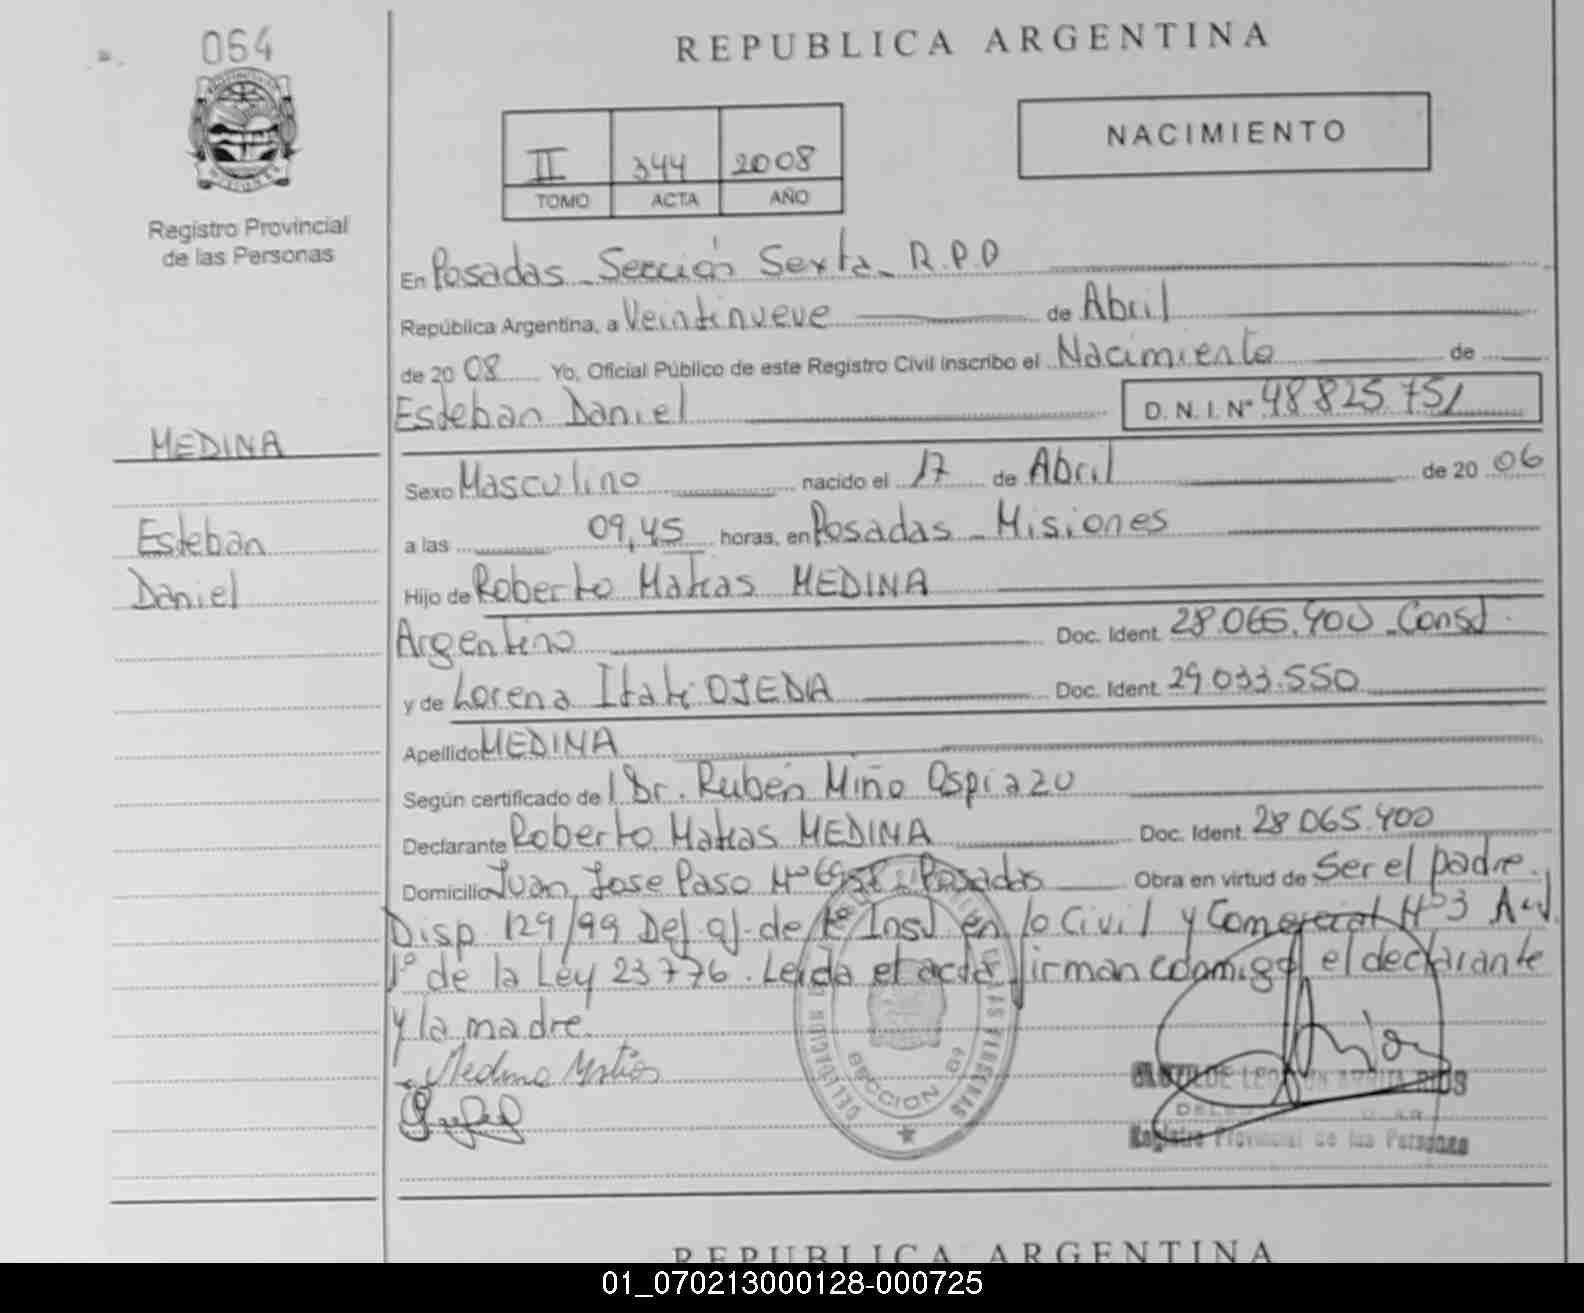 064
REPUBLICA ARGENTINA
NACIMIENTO
II 344 2008
TOMO ACTA AÑO
Registro Provincial
de las Personas
En Posadas - Sección Sexta - R.P.P
República Argentina, a Veintinueve de Abril
de 2008 Yo, Oficial Público de este Registro Civil inscribo el Nacimiento de
Esteban Daniel D. N. I. Nº 48825.751
MEDINA
Sexo Masculino nacido el 17 de Abril de 2006
Esteban
a las 09,45 horas, en Posadas - Misiones
Daniel
Hijo de Roberto Matias MEDINA
Argentino Doc. Ident. 28.065.400
y de Lorena Itati OJEDA Doc. Ident. 29.033.550
Apellido MEDINA
Según certificado de l Dr. Rubén Miño Ospiazu
Declarante Roberto Matias MEDINA Doc. Ident. 28 065.400
Domicilio Juan Jose Paso Nº 6958 - Posadas Obra en virtud de Ser el padre.
Disp 129/99 Def. of. de 1º Inst en lo Civil y Comercial Nº 3
1º de la Ley 23776. Leida el acta firman conmigo el declarante
y la madre.
Medina Matias
DELEGACION
SECCION 6ª
DE LAS PERSONAS
RIOS
Registro Provincial de las Personas
REPUBLICA ARGENTINA
01_070213000128-000725